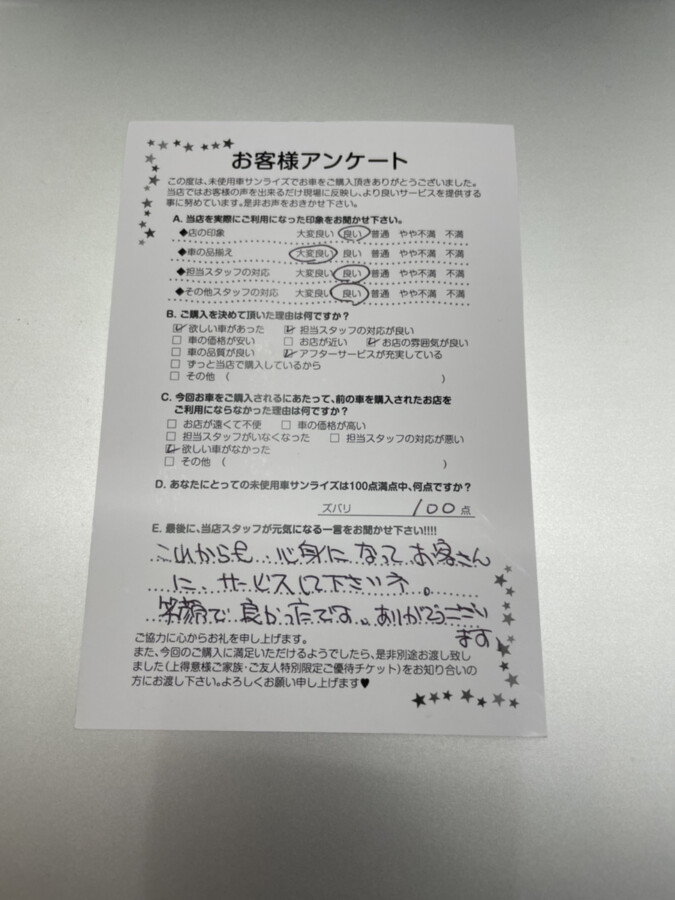 お客様アンケート
この度は、未使用車サンライズでお車をご購入頂きありがとうございました。
当店ではお客様の声を出来るだけ現場に反映し、より良いサービスを提供する
事に努めています。是非お声をおきかせ下さい。
A. 当店を実際にご利用になった印象をお聞かせ下さい。
◆店の印象 大変良い 良い 普通 やや不満 不満
◆車の品揃え 大変良い 良い 普通 やや不満 不満
◆担当スタッフの対応 大変良い 良い 普通 やや不満 不満
◆その他スタッフの対応 大変良い 良い 普通 やや不満 不満
B. ご購入を決めて頂いた理由は何ですか？
☑ 欲しい車があった ☑ 担当スタッフの対応が良い
□ 車の価格が安い □ お店が近い ☑ お店の雰囲気が良い
□ 車の品質が良い ☑ アフターサービスが充実している
□ ずっと当店で購入しているから
□ その他 ( )
C. 今回お車をご購入されるにあたって、前の車を購入されたお店を
ご利用にならなかった理由は何ですか？
□ お店が遠くて不便 □ 車の価格が高い
□ 担当スタッフがいなくなった □ 担当スタッフの対応が悪い
☑ 欲しい車がなかった
□ その他 ( )
D. あなたにとっての未使用車サンライズは100点満点中、何点ですか？
ズバリ 100 点
E. 最後に、当店スタッフが元気になる一言をお聞かせ下さい!!!!
これからも 心身になって お客さん
に、サービスして下さい
笑顔で 良かったです。ありがとうござい
ます
ご協力に心からお礼を申し上げます。
また、今回のご購入に満足いただけるようでしたら、是非別途お渡し致し
ました(上得意様ご家族・ご友人特別限定ご優待チケット)をお知り合いの
方にお渡し下さい。よろしくお願い申し上げます♥